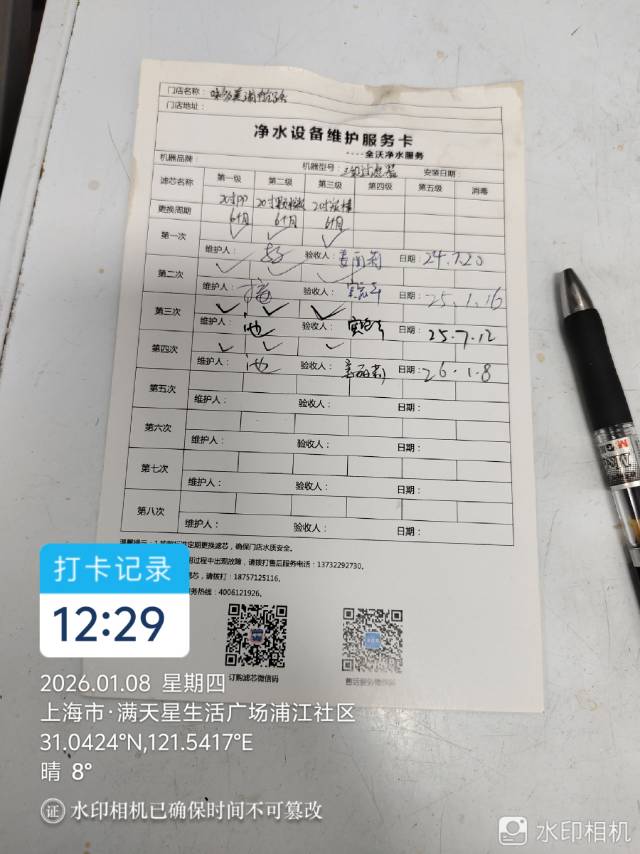 门店名称：
门店地址：
净水设备维护服务卡
----全沃净水服务
机器品牌： 机器型号： 安装日期
滤芯名称 第一级 第二级 第三级 第四级 第五级 消毒
20寸PP 20寸颗粒炭
更换周期 6个月 6个月 6个月
第一次 ✓ ✓ ✓
维护人： 验收人： 日期：24.7.20
第二次 ✓ ✓ ✓
维护人： 验收人： 日期：25.1.16
第三次 ✓ ✓ ✓
维护人：池 验收人： 日期：25.7.12
第四次 ✓ ✓ ✓
维护人：池 验收人： 日期：26.1.8
第五次
维护人： 验收人： 日期：
第六次
维护人： 验收人： 日期：
第七次
维护人： 验收人： 日期：
第八次
维护人： 验收人： 日期：
温馨提示：1.按照标准定期更换滤芯，确保门店水质安全。
用过程中出现故障，请拨打售后服务电话：13732292730.
滤芯，请拨打：18757125116.
务热线：4006121926.
订购滤芯微信码 售后服务微信码
打卡记录
12:29
2026.01.08 星期四
上海市·满天星生活广场浦江社区
31.0424°N,121.5417°E
晴 8°
证 水印相机已确保时间不可篡改
水印相机